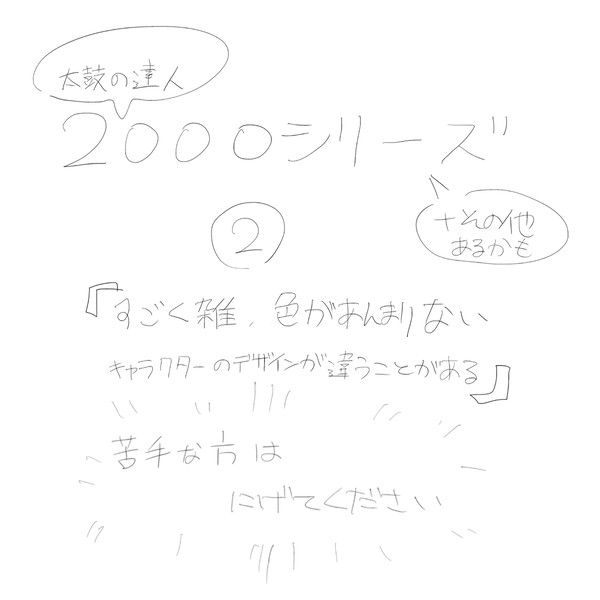 太鼓の達人
2000シリーズ
+その他
あるかも
②
『すごく雑、色があんまりない
キャラクターのデザインが違うことがある』
苦手な方は
にげてください